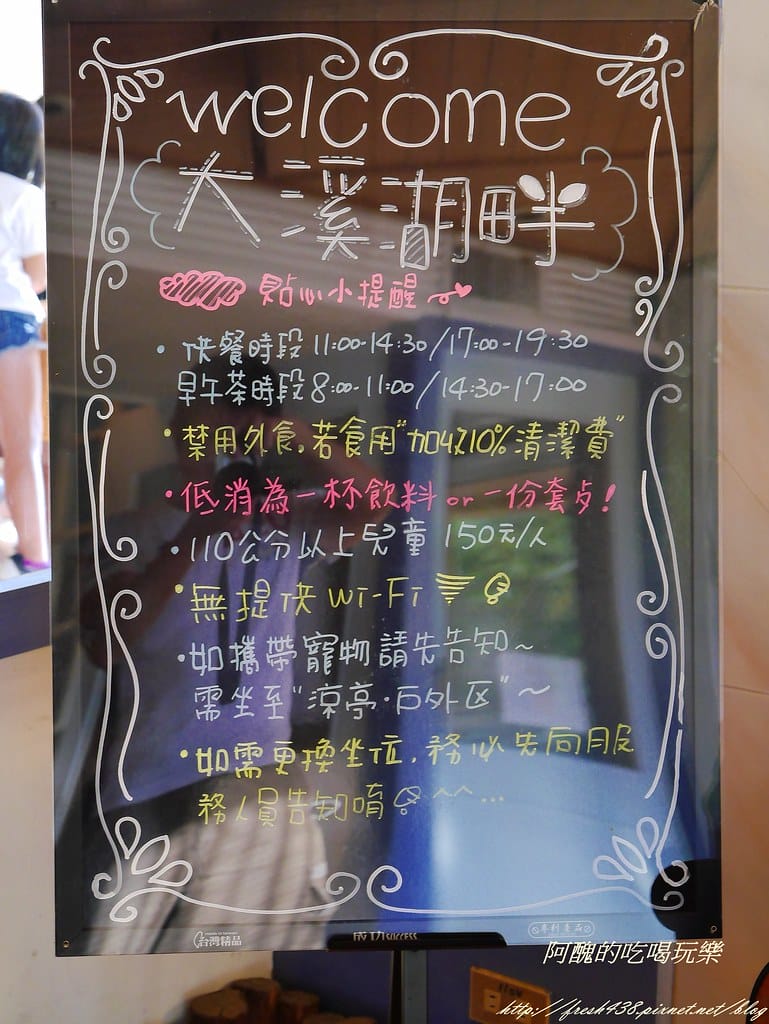 welcome
大溪湖畔
貼心小提醒
• 供餐時段 11:00-14:30/17:00-19:30
早午茶時段 8:00-11:00/14:30-17:00
• 禁用外食,若食用"加收10%清潔費"
• 低消為一杯飲料 or 一份套点!
• 110公分以上兒童 150元/人
• 無提供 Wi-Fi
• 如攜帶寵物請先告知~
需坐至"涼亭·戶外区"~
• 如需更換坐位,務必先向服
務人員告知唷 ^^...
台灣精品
成功SUCCESS
專利產品
阿醜的吃喝玩樂
http://fresh438.pixnet.net/blog